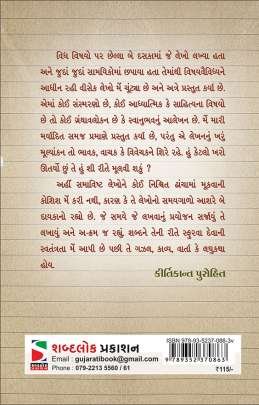 વિધ વિષયો પર છેલ્લા બે દસકામાં જે લેખો લખ્યા હતા
અને જુદાં જુદાં સામયિકોમાં છપાયા હતા તેમાંથી વિષયવૈવિધ્યને
આધીન રહી વીસેક લેખો મેં ચૂંટ્યા છે અને અત્રે પ્રસ્તુત કર્યા છે.
એમાં કોઈ સંસ્મરણો છે. કોઈ આધ્યાત્મિક કે સાહિત્યના વિષયો
છે તો કોઈ ગ્રંથાવલોકન છે કે સ્વાનુભવનું આલેખન છે. મેં મારી
મર્યાદિત સમજ પ્રમાણે પ્રસ્તુત કર્યા છે, પરંતુ એ લેખનનું ખરું
મૂલ્યાંકન તો ભાવક, વાચક કે વિવેચકને શિરે રહે. હું કેટલો ખરો
ઊતર્યો છું તે હું શી રીતે મૂલવી શકું ?
અહીં સમાવિષ્ટ લેખોને કોઈ નિશ્ચિત ઢાંચામાં મૂકવાની
કોશિશ મેં કરી નથી, કારણ કે તે લેખોનો સમયગાળો આશરે બે
દાયકાનો રહ્યો છે. જે સમયે જે લખવાનું પ્રયોજન સર્જાયું તે
લખાયું અને અ-ક્રમ જ રહ્યું. શબ્દને તેની રીતે સ્ફુરવા દેવાની
સ્વતંત્રતા મેં આપી છે પછી તે ગઝલ, કાવ્ય, વાર્તા કે લઘુકથા
હોય.
કીર્તિકાન્ત પુરોહિત
શબ્દલોક પ્રકાશન
Email : gujaratibook@gmail.com
Phone : 079-2213 5560 / 61
ISBN 978-93-5237-086-3v
9789352370863
₹115/-